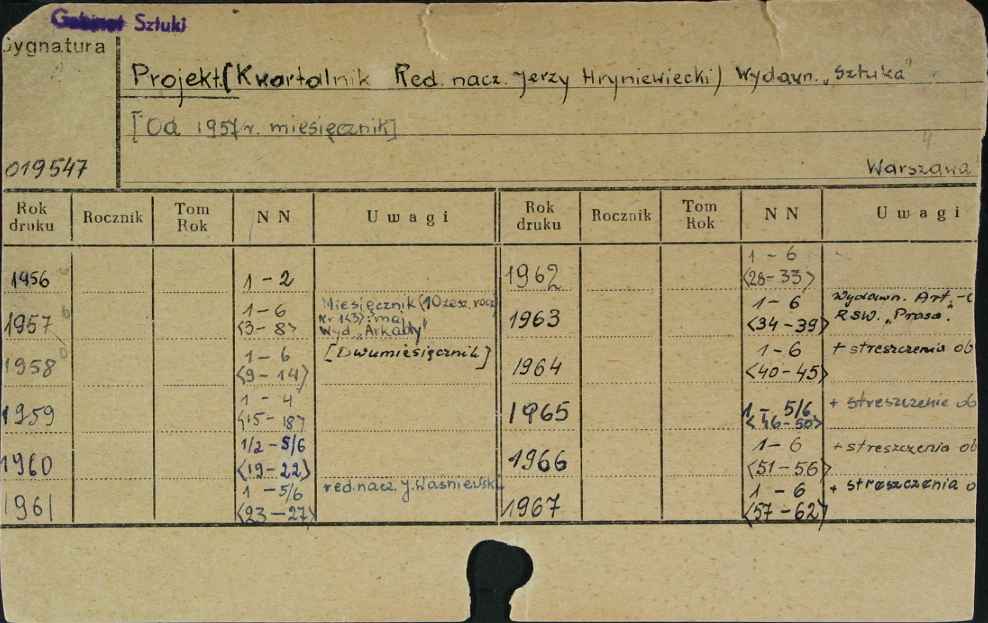 Gabinet Sztuki
Sygnatura
Projekt. (Kwartalnik Red. nacz. Jerzy Hryniewiecki) Wydawn. „Sztuka"
[Od 1957 r. miesięcznik]
019547
Warszawa
Rok druku Rocznik Tom Rok N N Uwagi Rok druku Rocznik Tom Rok N N Uwagi
1956 1-2
1957 1-6 <3-8> Miesięcznik (10 zesz. rocz
Wyd. „Arkady"
1958 1-6 <9-14> [Dwumiesięcznik]
1959 1-4 <15-18>
1960 1/2-5/6 <19-22>
1961 1-5/6 <23-27> red. nacz. J. Waśniewski
1962 1-6 <28-33>
1963 1-6 <34-39> Wydawn. Art.-
RSW. „Prasa".
1964 1-6 <40-45> + streszczenia ob
1965 1-5/6 <46-50> + streszczenie ob
1966 1-6 <51-56> + streszczenia ob
1967 1-6 <57-62> + streszczenia o